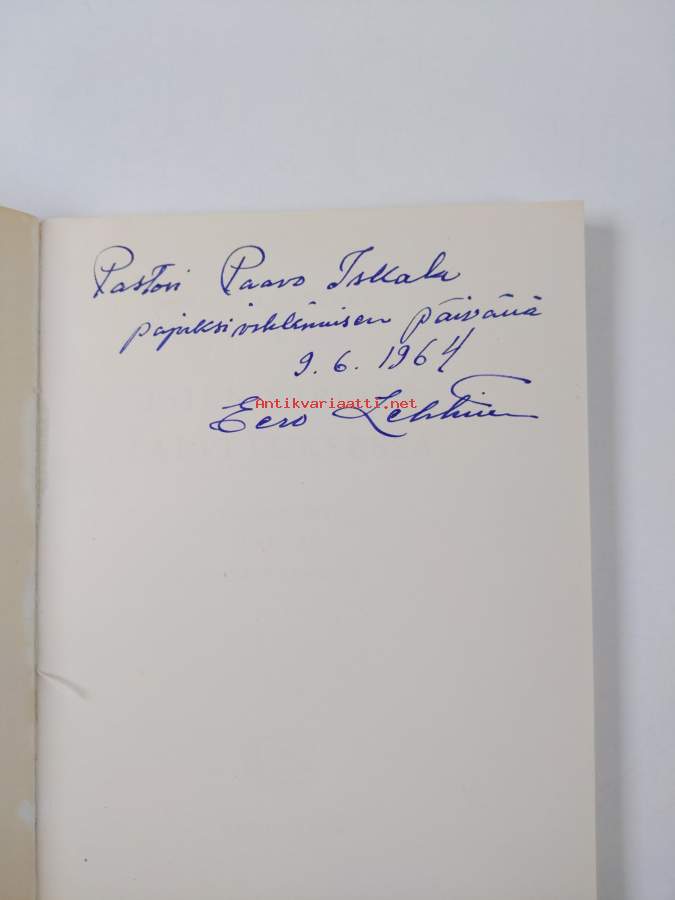 Pastori Paavo Iskala
papiksivihkimisen päivänä
9.6.1964
Antikvariaatti.net
Eero Lehtinen